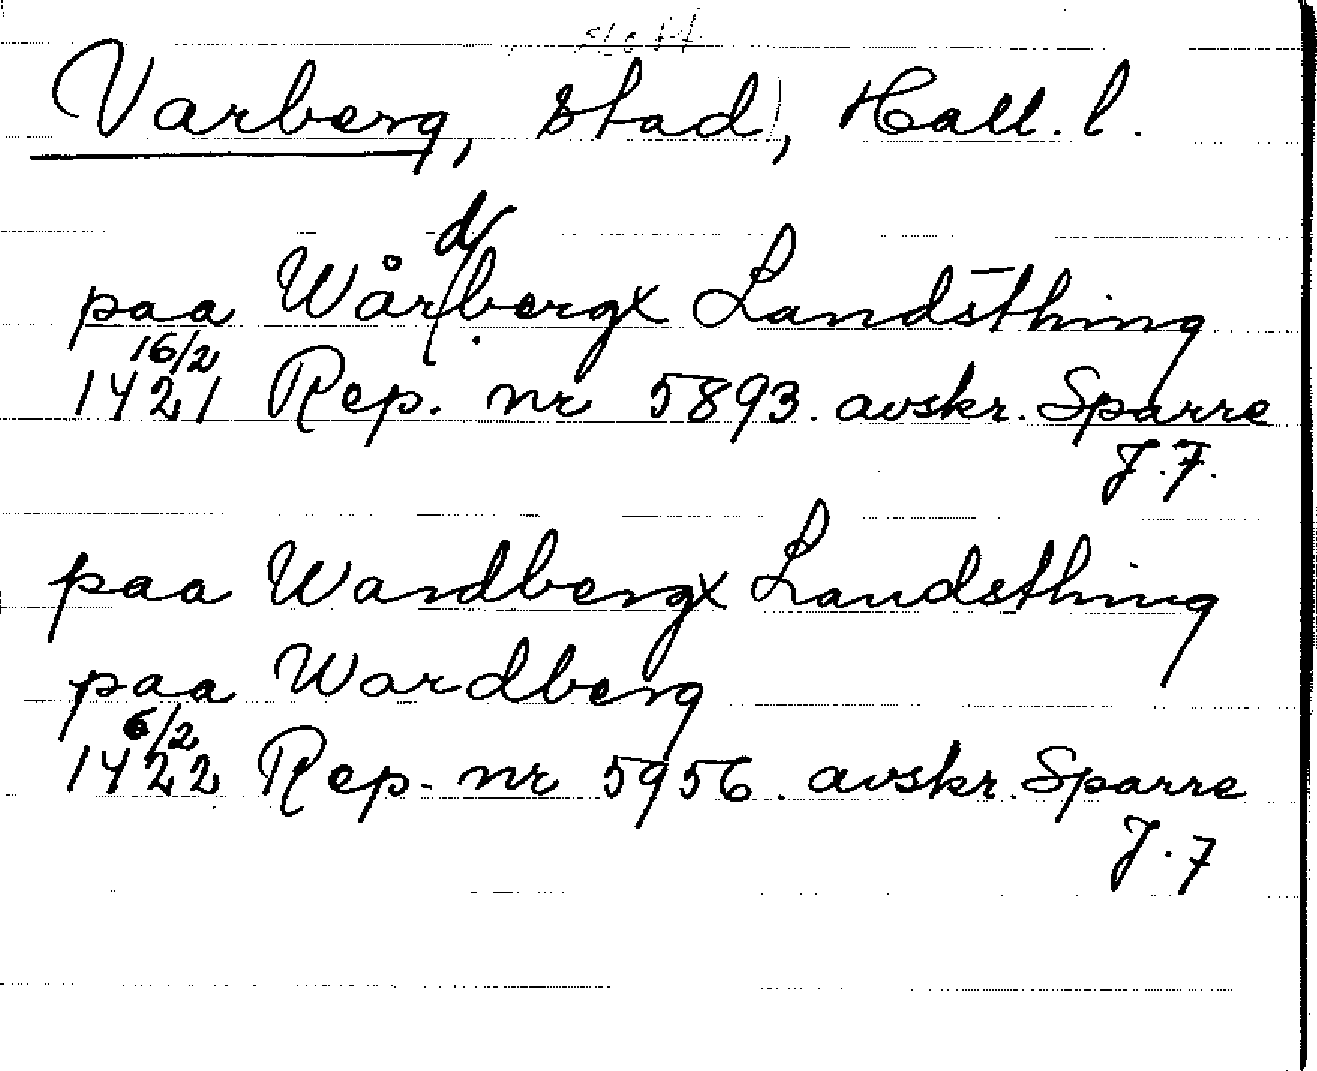 slott
Varberg, stad, Hall. l.
d
paa Wårbergx Landsthing
16/2
1421 Rep. nr 5893. avskr. Sparre
J. 7.
paa Wardbergx Landsthing
paa Wardberg
6/2
1422 Rep. nr 5956. avskr. Sparre
J. 7